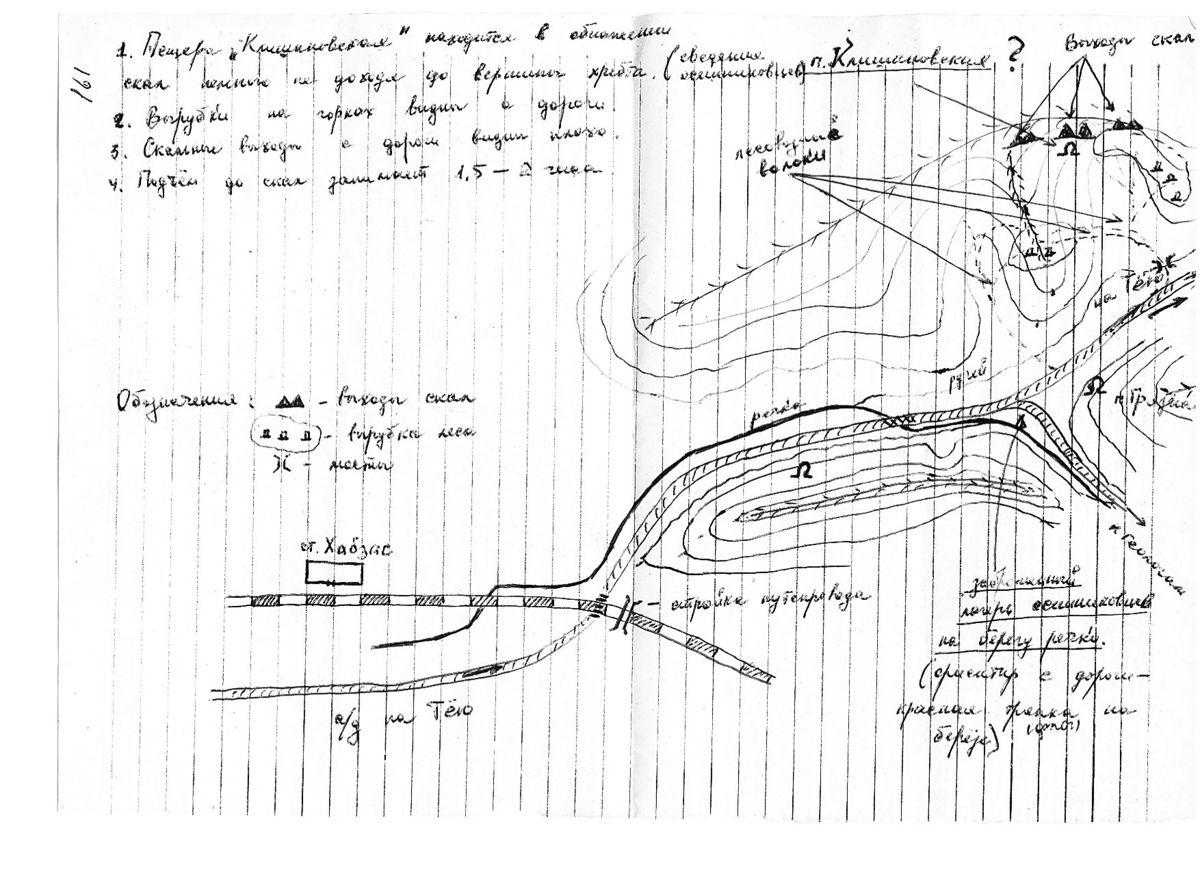 161
1. Пещера „Клишиновская" находится в обнажении
скал немного не доходя до вершины хребта. (сведения осинниковцев)
2. Вырубки на горках видны с дороги
3. Скальные выходы с дороги видны плохо.
4. Подъём до скал занимает 1,5 – 2 часа
п. Клишиновская ?
Выходы скал
лесовозные
волоки
на Тёю
ручей
речка
п. Грязная
Обозначения: – выходы скал
– вырубка леса
– мосты
ст. Хабзас
– стройка путепровода
к Геологам
а/д на Тёю
заброшенный
лагерь осинниковцев
на берегу речки.
(ориентир с дороги –
красная тряпка на
берегу)